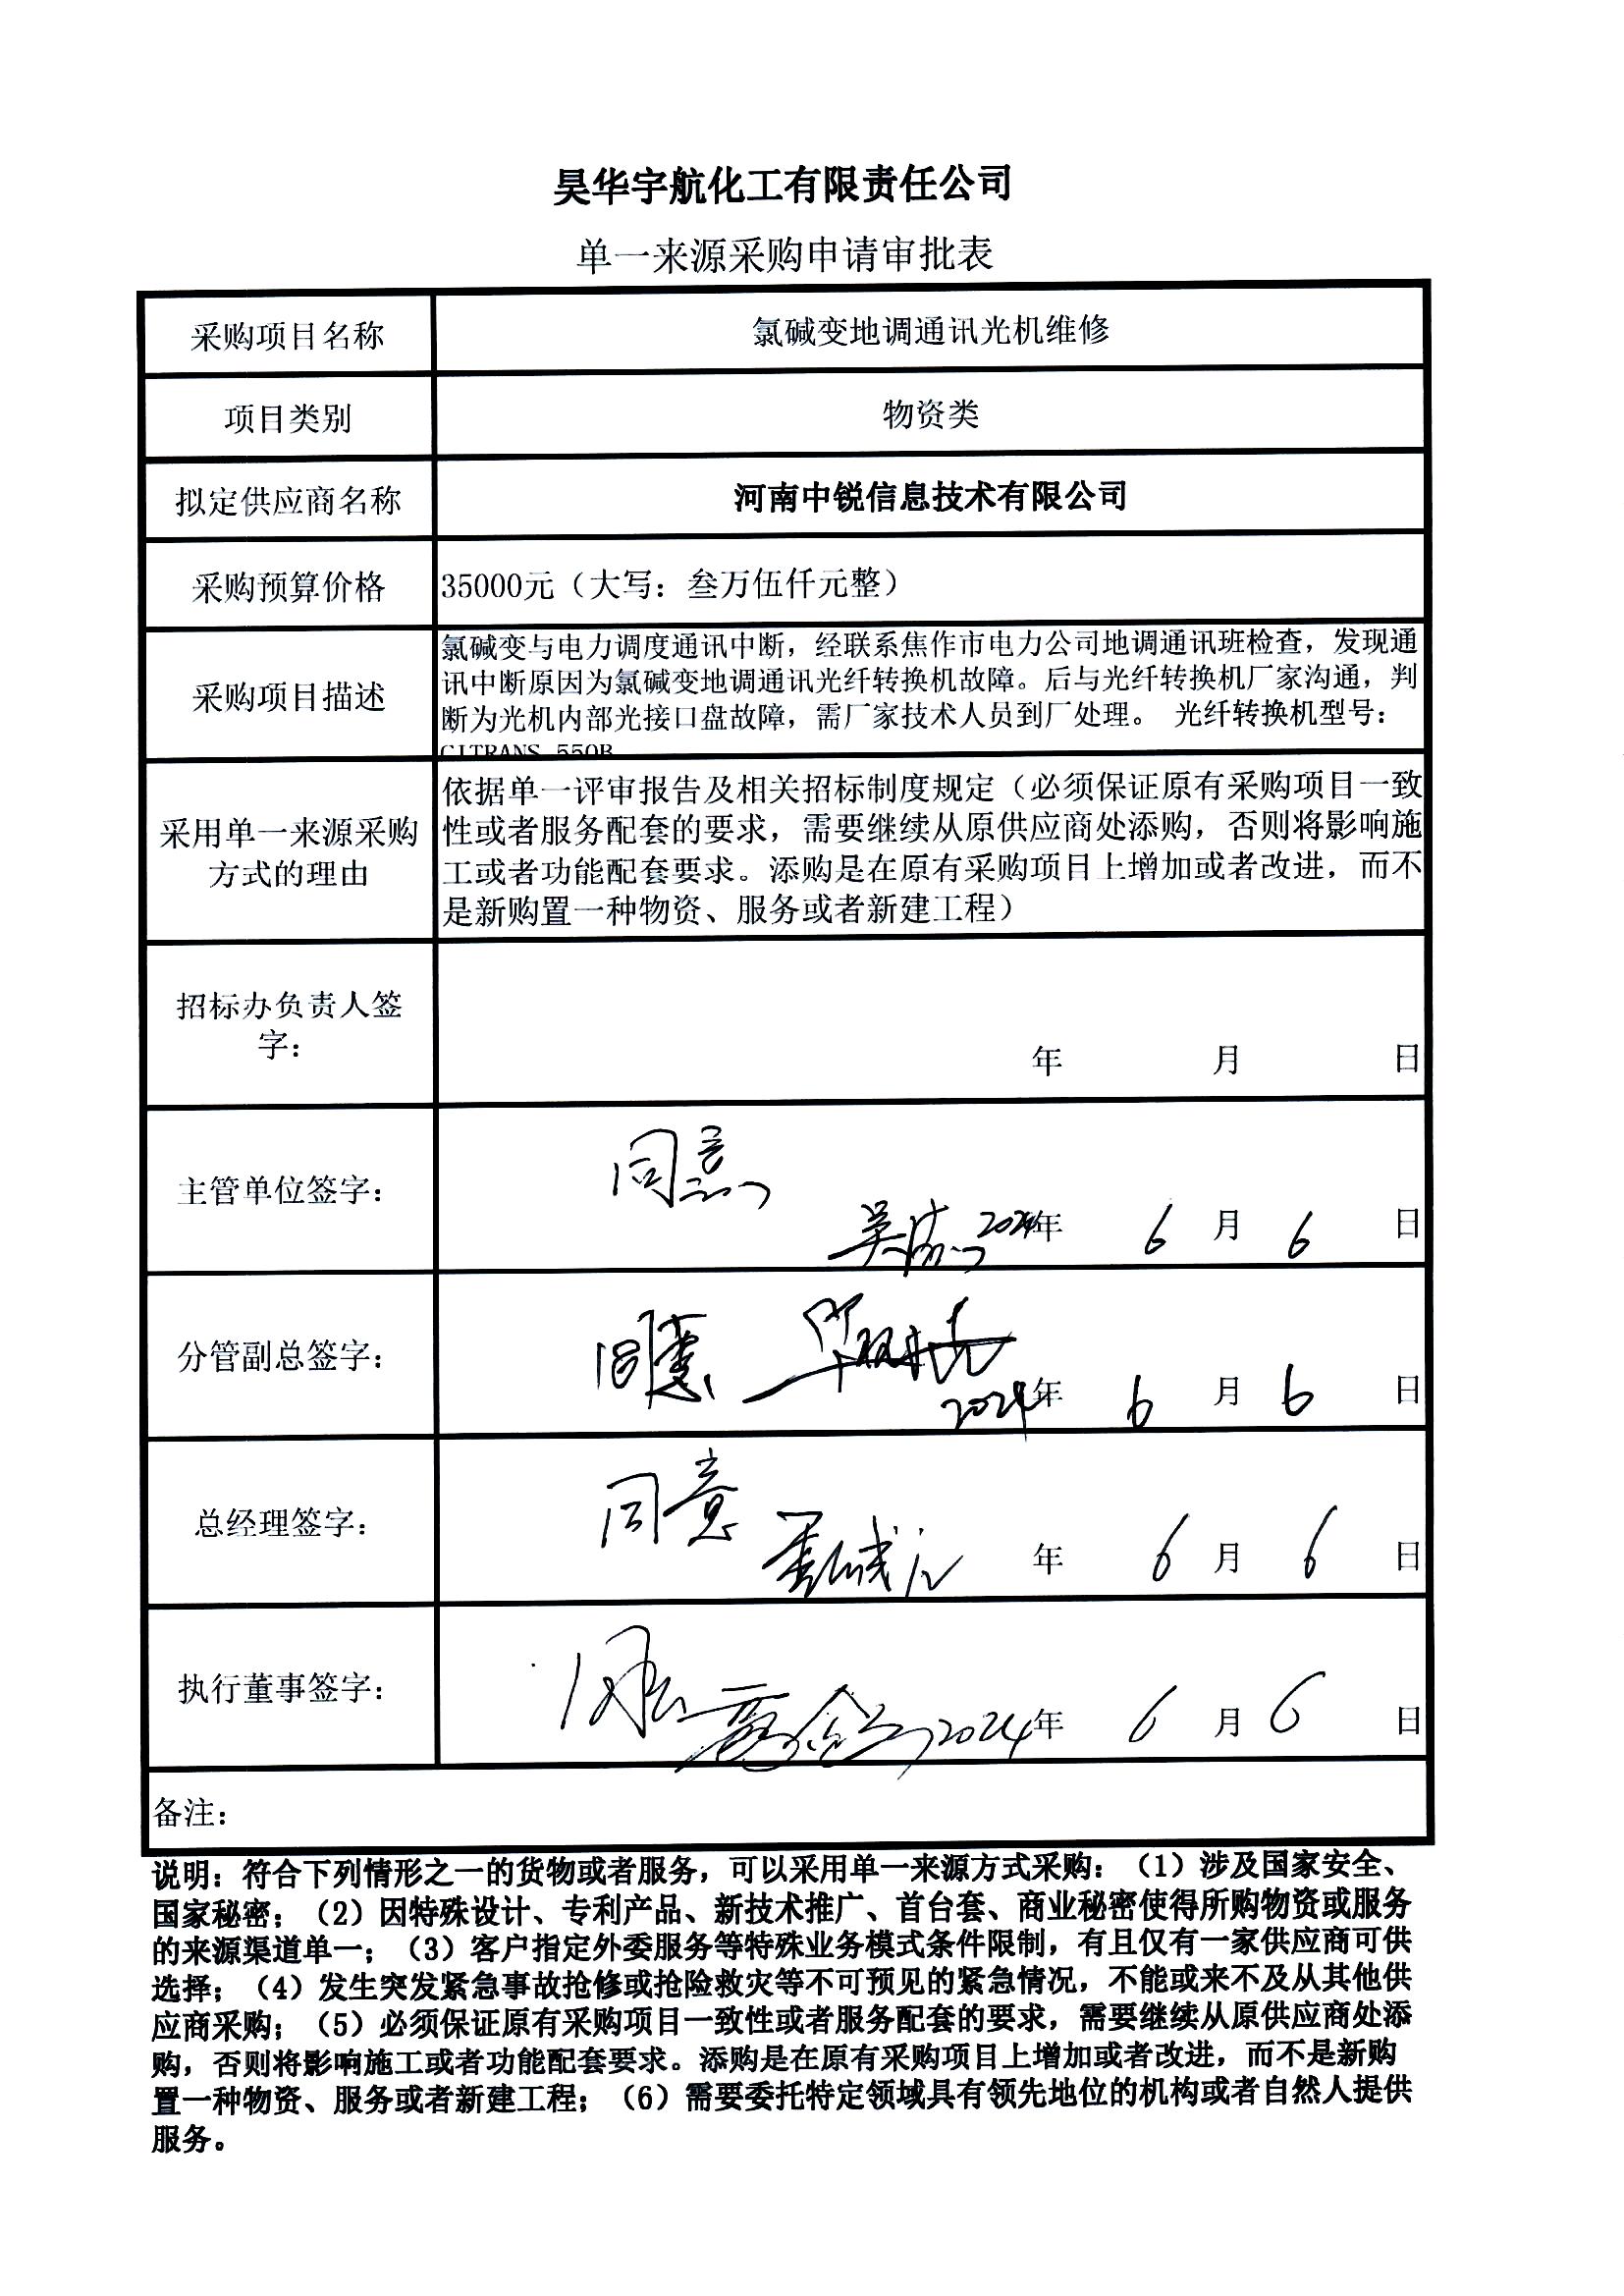 昊华宇航化工有限责任公司
单一来源采购申请审批表
采购项目名称 氯碱变地调通讯光机维修
项目类别 物资类
拟定供应商名称 河南中锐信息技术有限公司
采购预算价格 35000元（大写：叁万伍仟元整）
采购项目描述
氯碱变与电力调度通讯中断，经联系焦作市电力公司地调通讯班检查，发现通
讯中断原因为氯碱变地调通讯光纤转换机故障。后与光纤转换机厂家沟通，判
断为光机内部光接口盘故障，需厂家技术人员到厂处理。 光纤转换机型号：
CITRANS 550B
采用单一来源采购
方式的理由
依据单一评审报告及相关招标制度规定（必须保证原有采购项目一致
性或者服务配套的要求，需要继续从原供应商处添购，否则将影响施
工或者功能配套要求。添购是在原有采购项目上增加或者改进，而不
是新购置一种物资、服务或者新建工程）
招标办负责人签
字：
年 月 日
主管单位签字：
同意
2024年 6 月 6 日
分管副总签字：
同意
2024年 6 月 6 日
总经理签字：
同意
年 6 月 6 日
执行董事签字：
同意
2024年 6 月 6 日
备注：
说明：符合下列情形之一的货物或者服务，可以采用单一来源方式采购：（1）涉及国家安全、
国家秘密；（2）因特殊设计、专利产品、新技术推广、首台套、商业秘密使得所购物资或服务
的来源渠道单一；（3）客户指定外委服务等特殊业务模式条件限制，有且仅有一家供应商可供
选择；（4）发生突发紧急事故抢修或抢险救灾等不可预见的紧急情况，不能或来不及从其他供
应商采购；（5）必须保证原有采购项目一致性或者服务配套的要求，需要继续从原供应商处添
购，否则将影响施工或者功能配套要求。添购是在原有采购项目上增加或者改进，而不是新购
置一种物资、服务或者新建工程；（6）需要委托特定领域具有领先地位的机构或者自然人提供
服务。